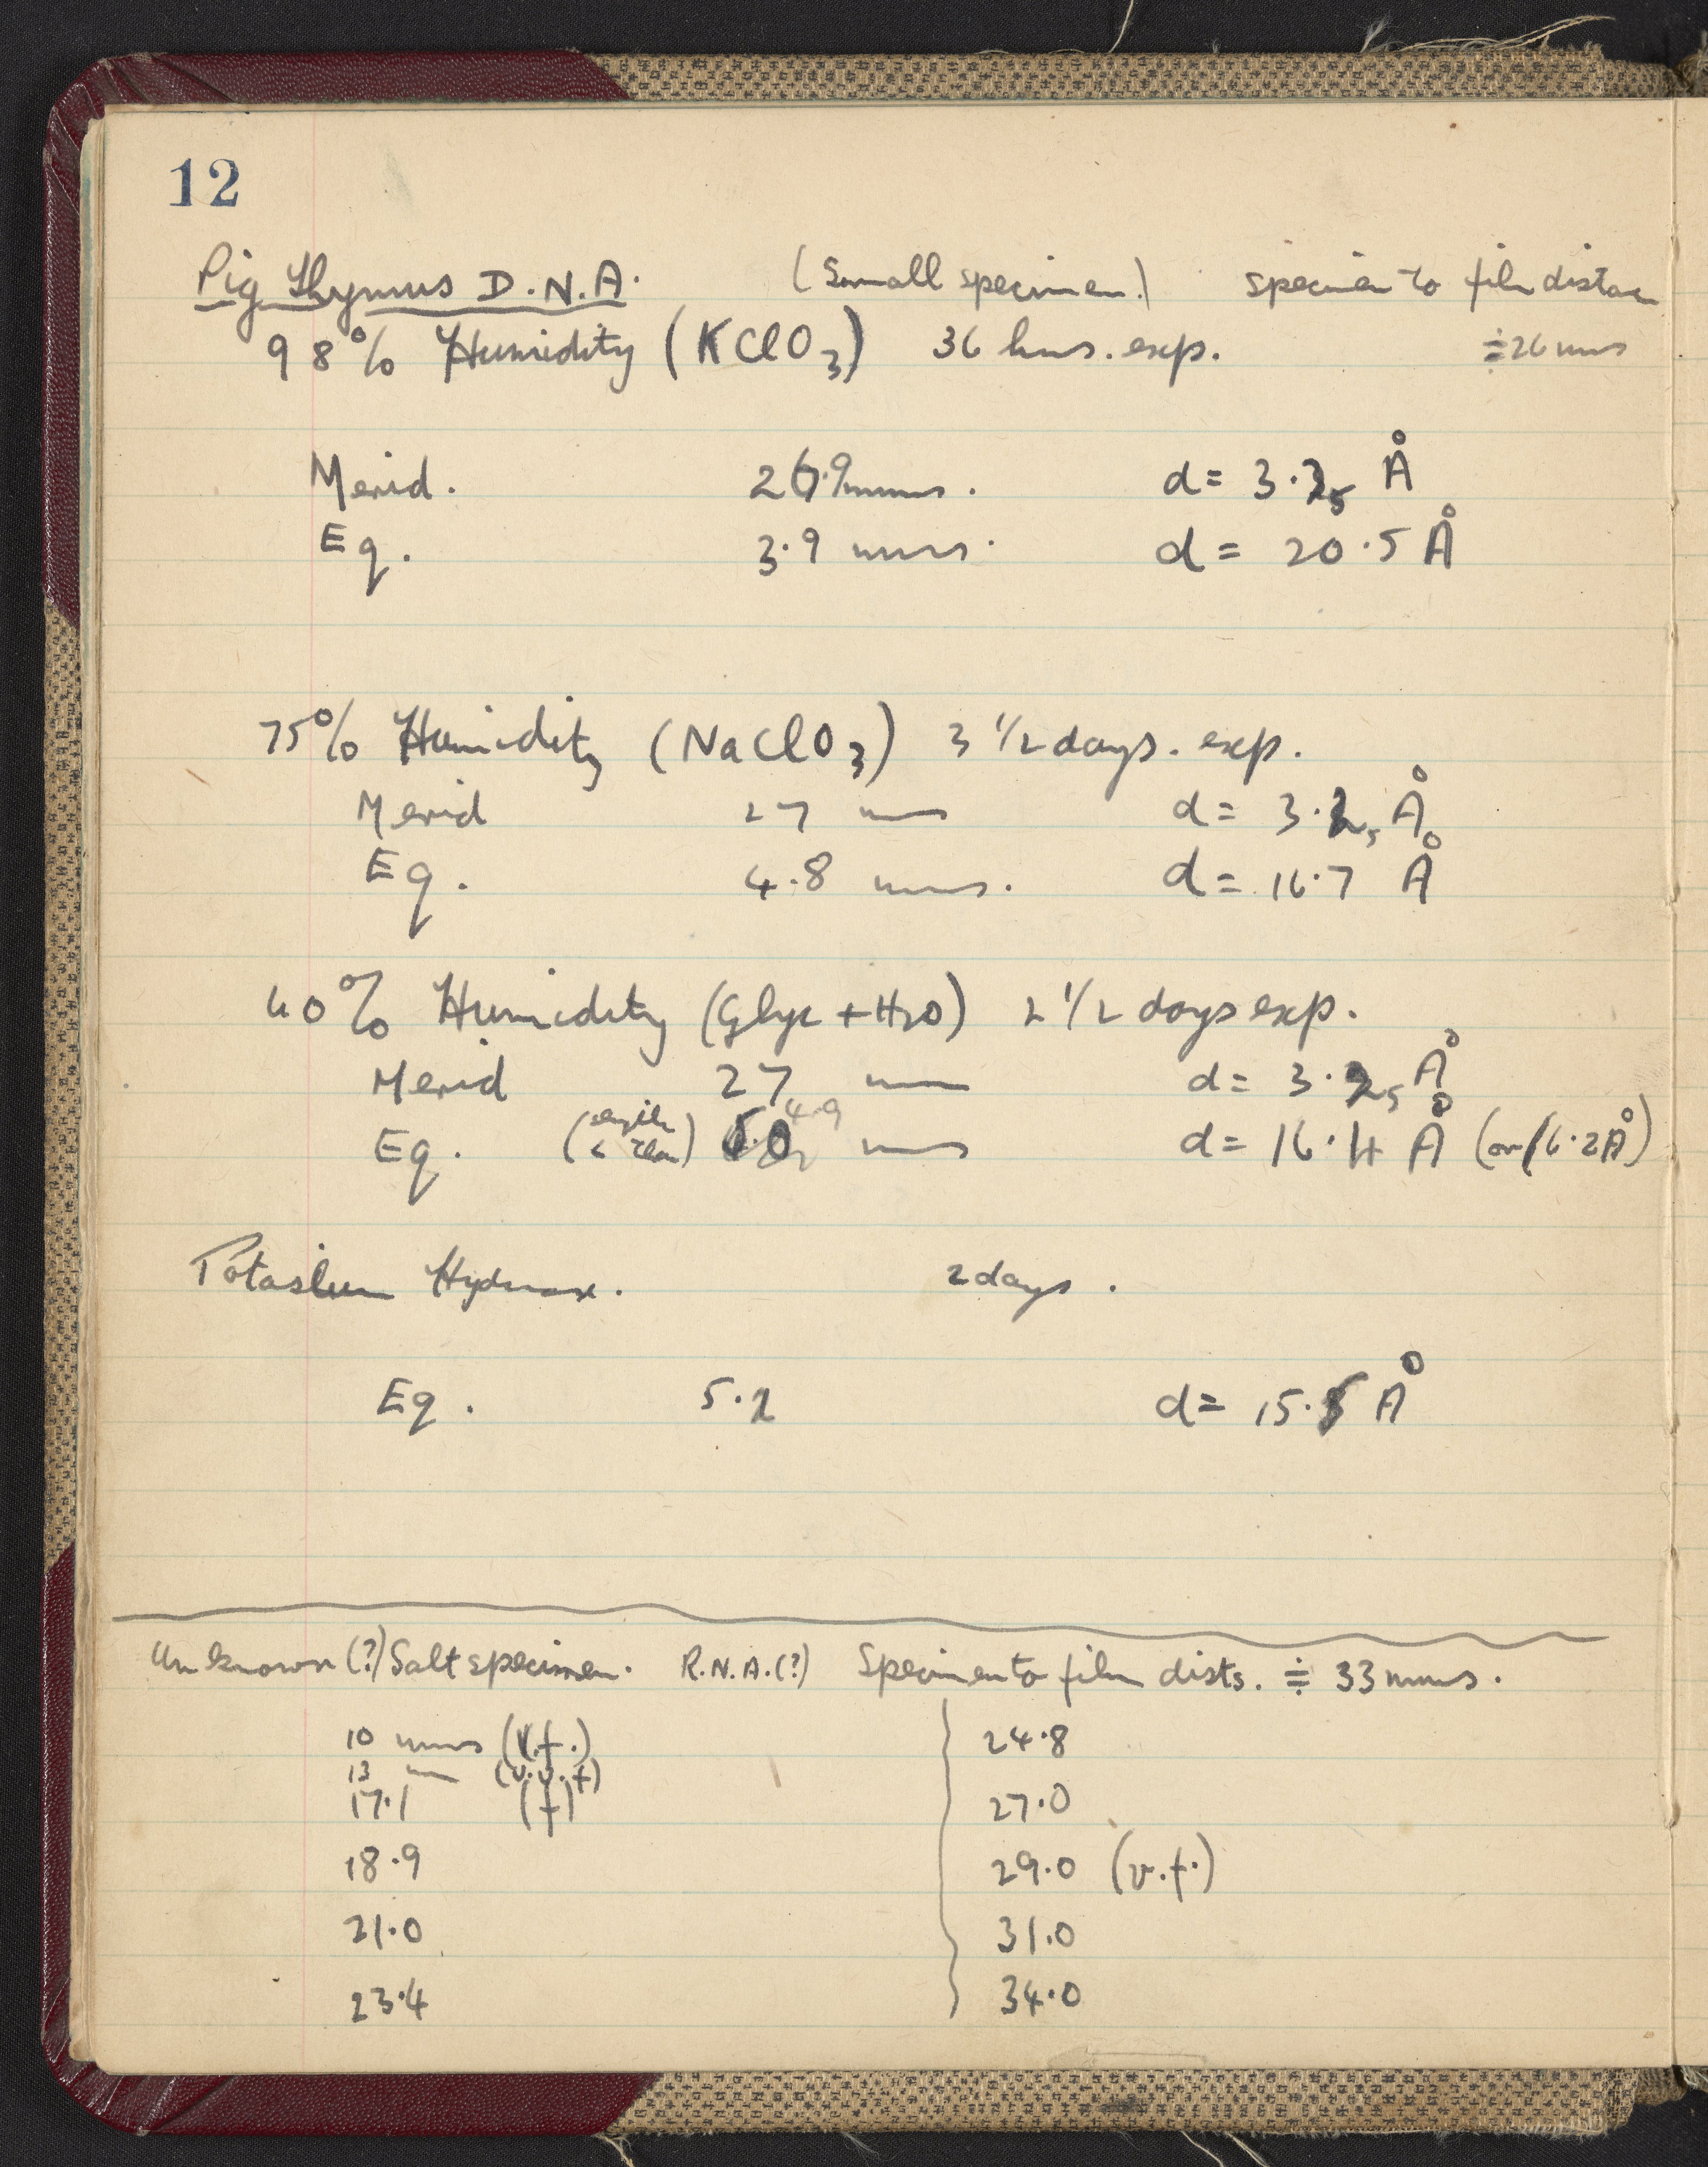 12
Pig Thymus D.N.A. (Small specimen) specimen to film distance
98% Humidity (KClO3) 36 hrs. exp. ≑26 mms
Merid. 26.9 mms. d = 3.25 Å
Eq. 3.9 mms. d = 20.5 Å
75% Humidity (NaClO3) 3 1/2 days. exp.
Merid 27 mm d = 3.25 Å
Eq. 4.8 mms. d = 16.7 Å
40% Humidity (Glyc + H2O) 2 1/2 days exp.
Merid 27 mm d = 3.25 Å
4.9
Eq. 5.0 mms d = 16.4 Å (or 16.2Å)
Potassium Hydrox. 2 days.
Eq. 5.2 d = 15.5 Å
Unknown (?) Salt specimen. R.N.A.(?) Specimen to film dists. ≑ 33 mms.
10 mms (v.f.) 24.8
13 mm (v.v.f)
17.1 (f) 27.0
18.9 29.0 (v.f.)
21.0 31.0
23.4 34.0